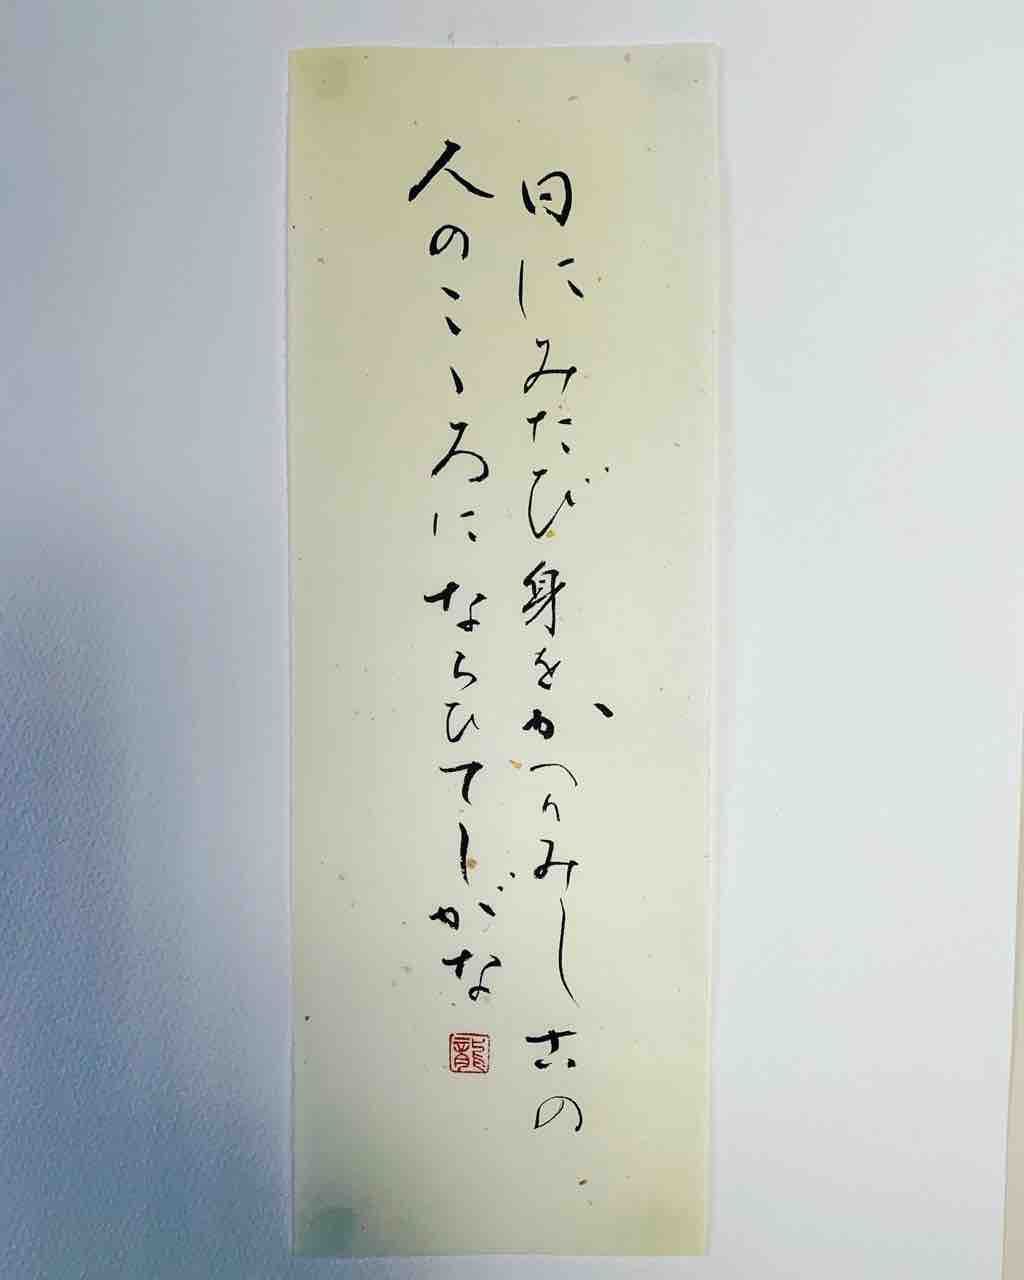 日にみたび身をかへりみし古の
人のこゝろにならひてしがな
龍